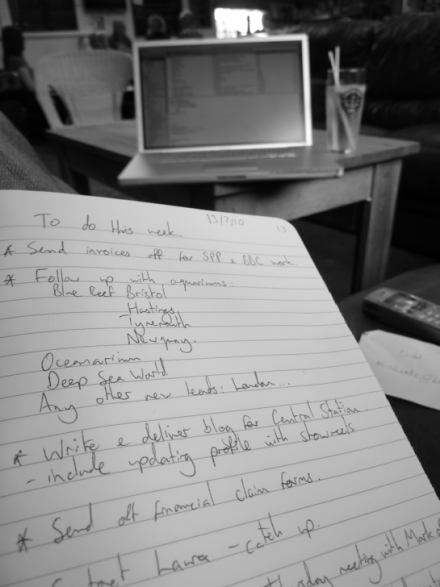 To do this week. 13/7/10 13
* Send invoices off for SPP & BBC work
* Follow up with aquariums:
Blue Reef Bristol
Hastings
Tynemouth
Newquay.
Oceanarium
Deep Sea World
Any other new leads: London...
* Write & deliver blog for Central Station.
- include updating profile with showreels
* Send off financial claim forms.
Laura - catch up.
day meeting with Mark